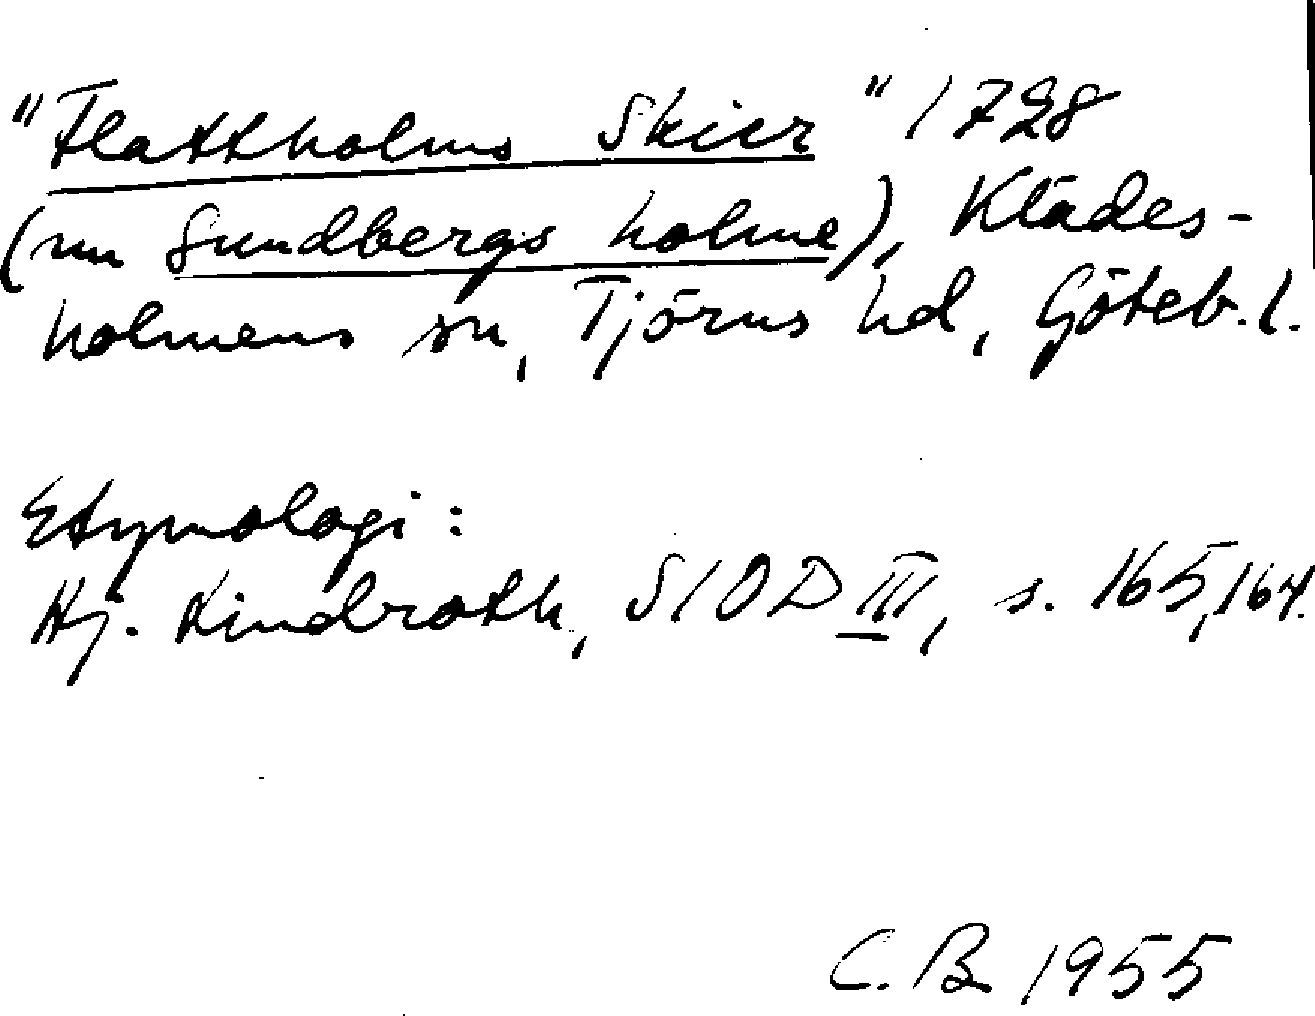 "Flattholms Skier" 1728
(nu Sundbergs holme), Klädes-
holmens sn, Tjörns hd, Göteb. l.
Etymologi:
Hj. Lindroth, SIOD III, s. 165, 164.
C. B 1955